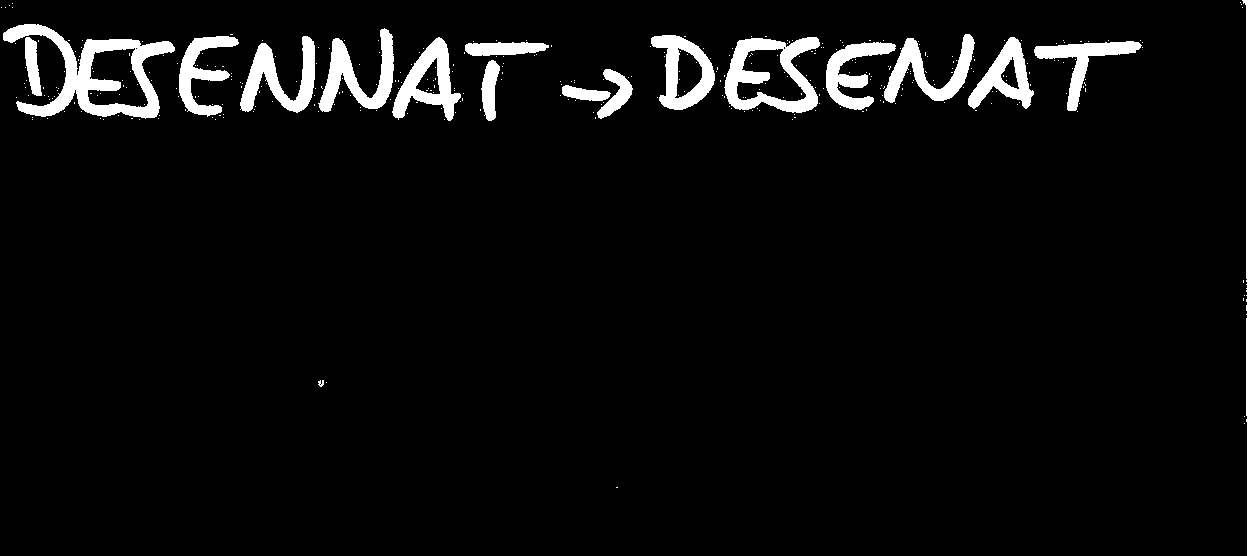 DESENNAT → DESENAT